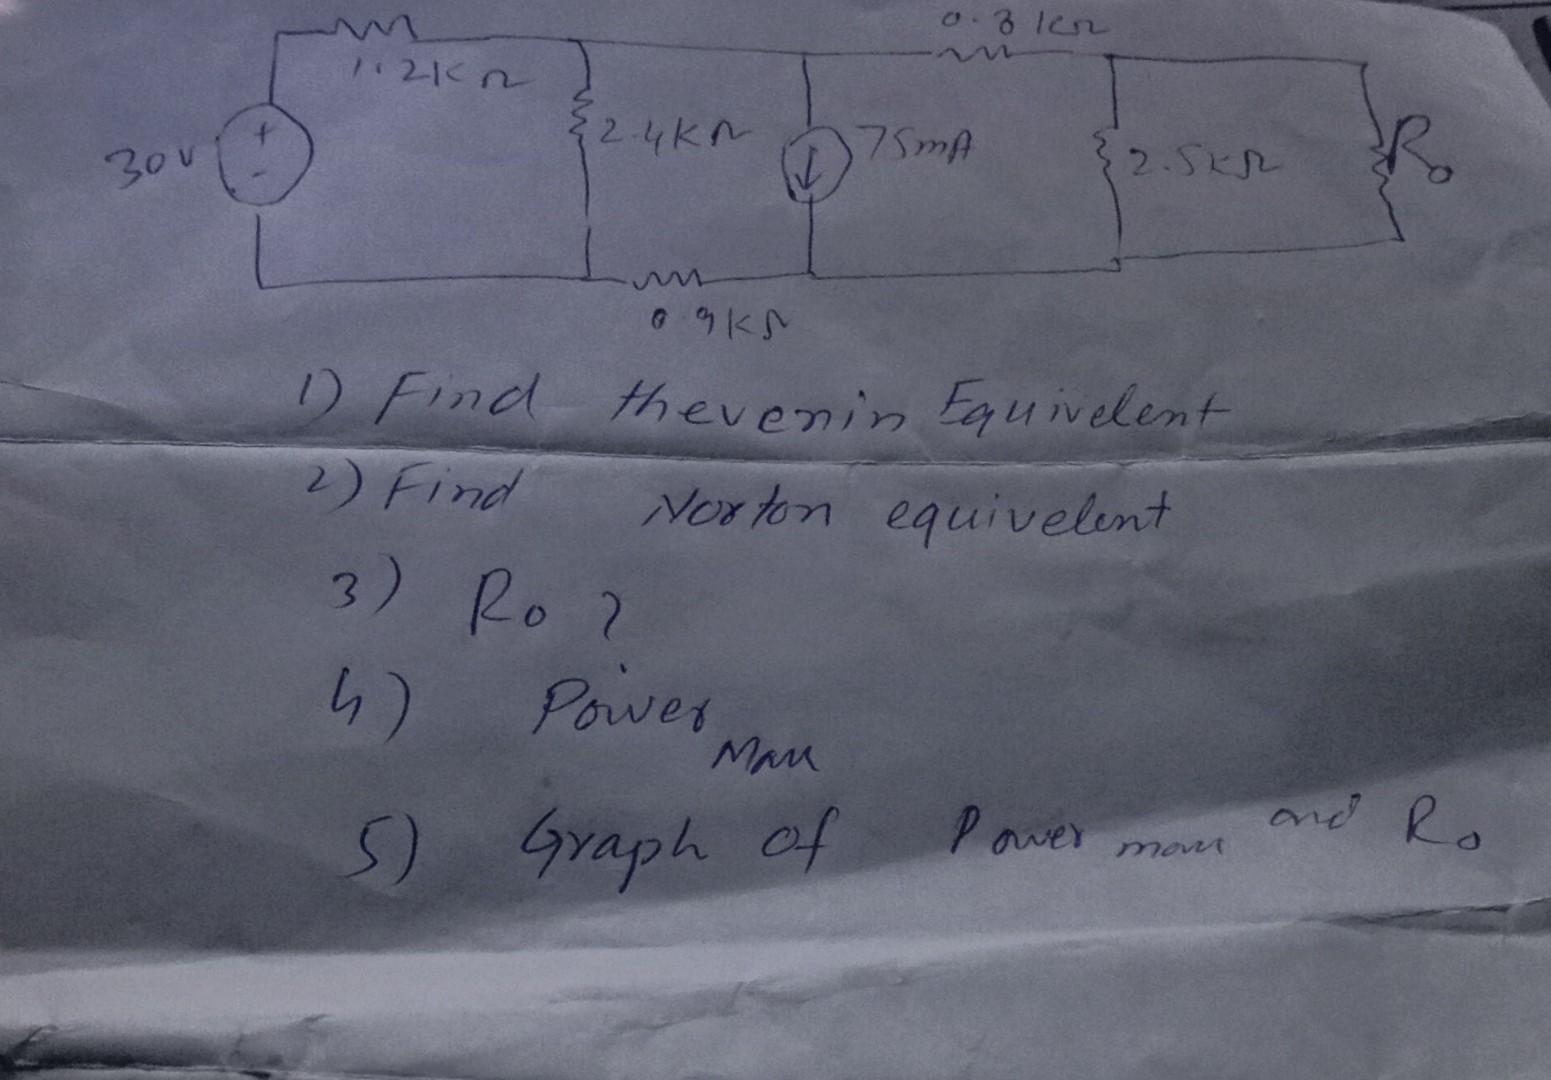 0.8 kΩ
1.2KΩ
30V
+
-
2.4KΩ
75mA
2.5KΩ
Ro
0.9KΩ
1) Find thevenin Equivelent
2) Find Norton equivelent
3) Ro ?
4) Power Max
5) Graph of Power max and Ro